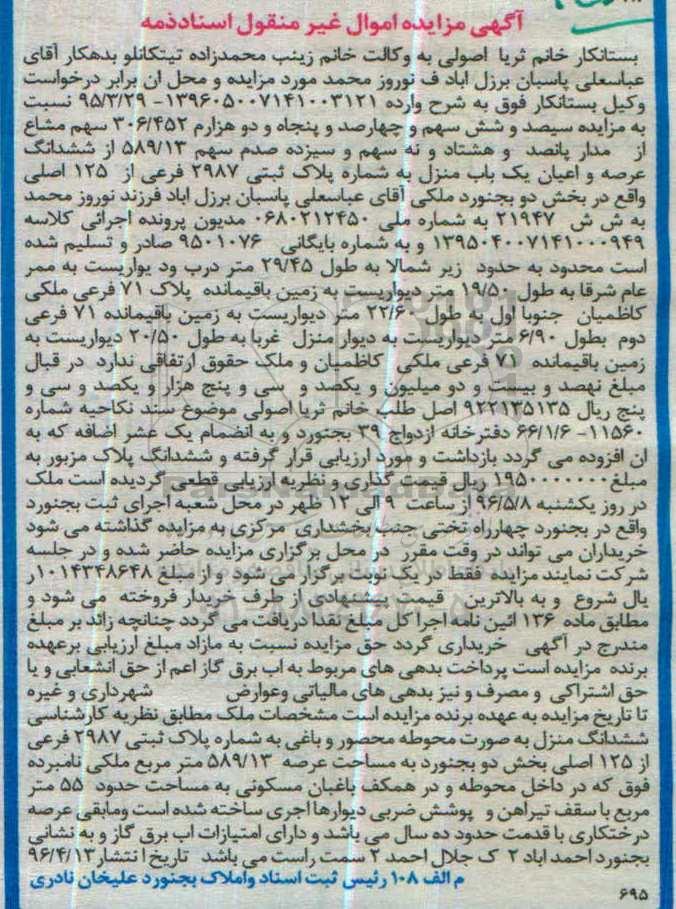 آگهی مزایده اموال غیر منقول اسنادذمه
بستانکار خانم ثریا اصولی به وکالت خانم زینب محمدزاده تیتکانلو بدهکار آقای
عباسعلی پاسبان برزل اباد ف نوروز محمد مورد مزایده و محل ان برابر درخواست
وکیل بستانکار فوق به شرح وارده ۱۳۹۶۰۵۰۰۷۱۴۱۰۰۳۱۲۱- ۹۵/۳/۲۹ نسبت
به مزایده سیصد و شش سهم و چهارصد و پنجاه و دو هزارم ۳۰۶/۴۵۲ سهم مشاع
از مدار پانصد و هشتاد و نه سهم و سیزده صدم سهم ۵۸۹/۱۳ از ششدانگ
عرصه و اعیان یک باب منزل به شماره پلاک ثبتی ۲۹۸۷ فرعی از ۱۲۵ اصلی
واقع در بخش دو بجنورد ملکی آقای عباسعلی پاسبان برزل اباد فرزند نوروز محمد
به ش ش ۲۱۹۴۷ به شماره ملی ۰۶۸۰۲۱۲۴۵۰ مدیون پرونده اجرائی کلاسه
۱۳۹۵۰۴۰۰۷۱۴۱۰۰۰۹۴۹ و به شماره بایگانی ۹۵۰۱۰۷۶ صادر و تسلیم شده
است محدود به حدود زیر شمالا به طول ۲۹/۴۵ متر درب ود یواریست به ممر
عام شرقا به طول ۱۹/۵۰ متر دیواریست به زمین باقیمانده پلاک ۷۱ فرعی ملکی
کاظمیان جنوبا اول به طول ۲۲/۶۰ متر دیواریست به زمین باقیمانده ۷۱ فرعی
دوم بطول ۶/۹۰ متر دیواریست به دیوار منزل غربا به طول ۲۰/۵۰ دیواریست به
زمین باقیمانده ۷۱ فرعی ملکی کاظمیان و ملک حقوق ارتفاقی ندارد در قبال
مبلغ نهصد و بیست و دو میلیون و یکصد و سی و پنج هزار و یکصد و سی و
پنج ریال ۹۲۲۱۳۵۱۳۵ اصل طلب خانم ثریا اصولی موضوع سند نکاحیه شماره
۱۱۵۶۰- ۶۶/۱/۶ دفترخانه ازدواج ۳۹ بجنورد و به انضمام یک عشر اضافه که به
ان افزوده می گردد بازداشت و مورد ارزیابی قرار گرفته و ششدانگ پلاک مزبور به
مبلغ ۱۹۵۰۰۰۰۰۰۰ ریال قیمت گذاری و نظریه ارزیابی قطعی گردیده است ملک
در روز یکشنبه ۹۶/۵/۸ از ساعت ۹ الی ۱۲ ظهر در محل شعبه اجرای ثبت بجنورد
واقع در بجنورد چهارراه تختی جنب بخشداری مرکزی به مزایده گذاشته می شود
خریداران می تواند در وقت مقرر در محل برگزاری مزایده حاضر شده و در جلسه
شرکت نمایند مزایده فقط در یک نوبت برگزار می شود و از مبلغ ۱۰۱۴۳۴۸۶۴۸ر
یال شروع و به بالاترین قیمت پیشنهادی از طرف خریدار فروخته می شود و
مطابق ماده ۱۳۶ ائین نامه اجرا کل مبلغ نقدا دریافت می گردد چنانچه زائد بر مبلغ
مندرج در آگهی خریداری گردد حق مزایده نسبت به مازاد مبلغ ارزیابی برعهده
برنده مزایده است پرداخت بدهی های مربوط به اب برق گاز اعم از حق انشعابی و یا
حق اشتراکی و مصرف و نیز بدهی های مالیاتی وعوارض شهرداری و غیره
تا تاریخ مزایده به عهده برنده مزایده است مشخصات ملک مطابق نظریه کارشناسی
ششدانگ منزل به صورت محوطه محصور و باغی به شماره پلاک ثبتی ۲۹۸۷ فرعی
از ۱۲۵ اصلی بخش دو بجنورد به مساحت عرصه ۵۸۹/۱۳ متر مربع ملکی نامبرده
فوق که در داخل محوطه و در همکف باغبان مسکونی به مساحت حدود ۵۵ متر
مربع با سقف تیراهن و پوشش ضربی دیوارها اجری ساخته شده است ومابقی عرصه
درختکاری با قدمت حدود ده سال می باشد و دارای امتیازات اب برق گاز و به نشانی
بجنورد احمد اباد ۲ ک جلال احمد ۲ سمت راست می باشد تاریخ انتشار ۹۶/۴/۱۳
م الف ۱۰۸ رئیس ثبت اسناد واملاک بجنورد علیخان نادری
۶۹۵